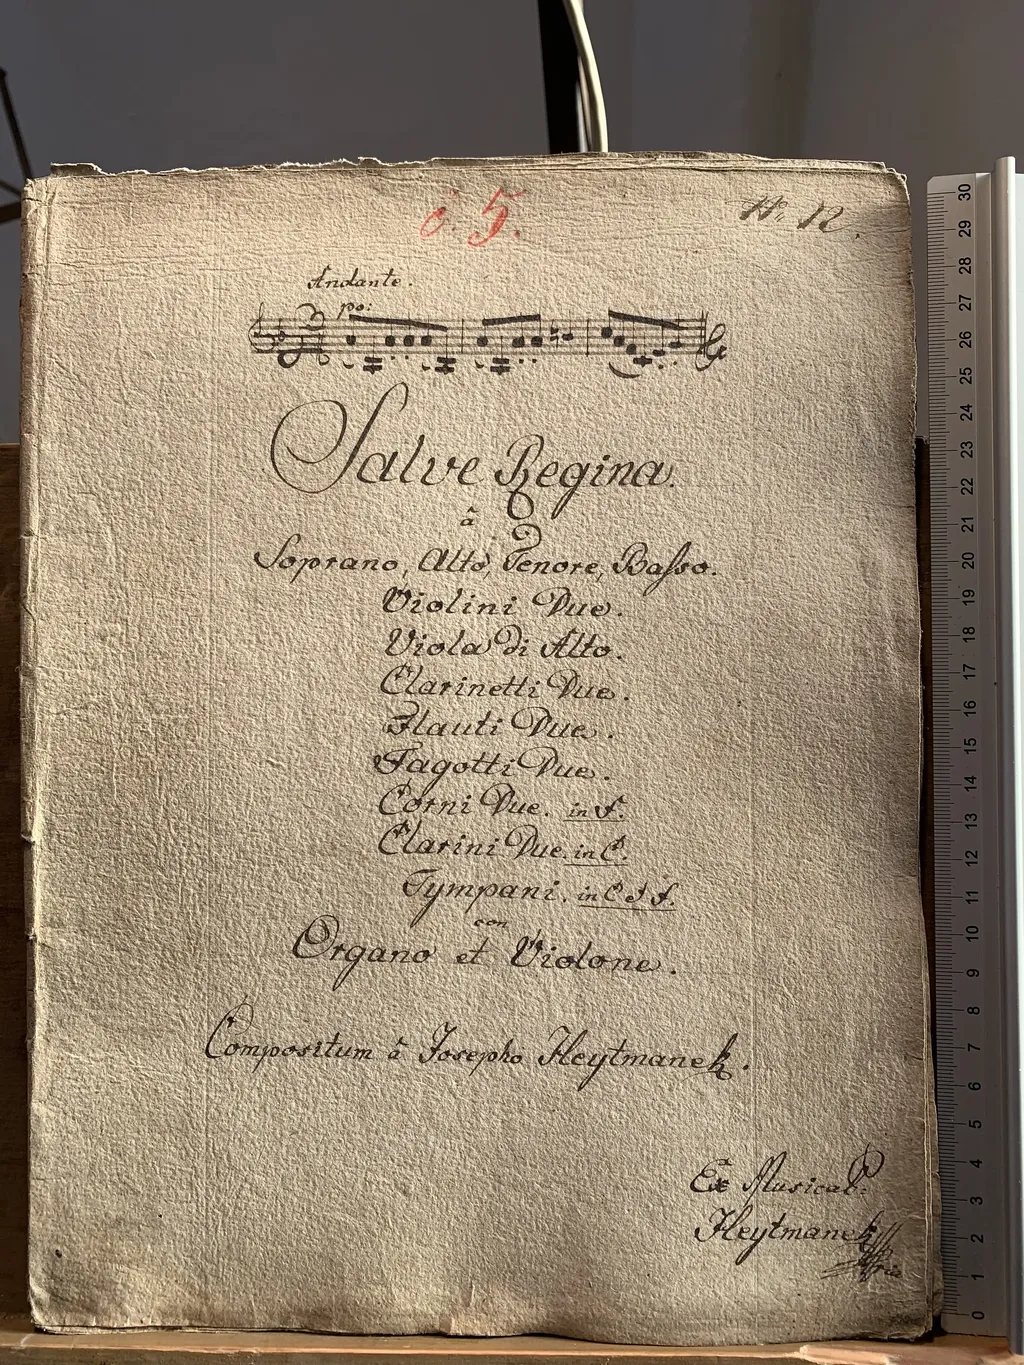 č. 5.
No. 12.
Andante.
po:
Salve Regina.
â
Soprano, Alto, Tenore, Basso.
Violini Due.
Viola di Alto.
Clarinetti Due.
Flauti Due.
Fagotti Due.
Corni Due. in F.
Clarini Due in C.
Tympani. in C et F.
con
Organo et Violone.
Compositum â Josepho Heytmanek.
Ex Musical:
Heytmanek
30
29
28
27
26
25
24
23
22
21
20
19
18
17
16
15
14
13
12
11
10
9
8
7
6
5
4
3
2
1
0